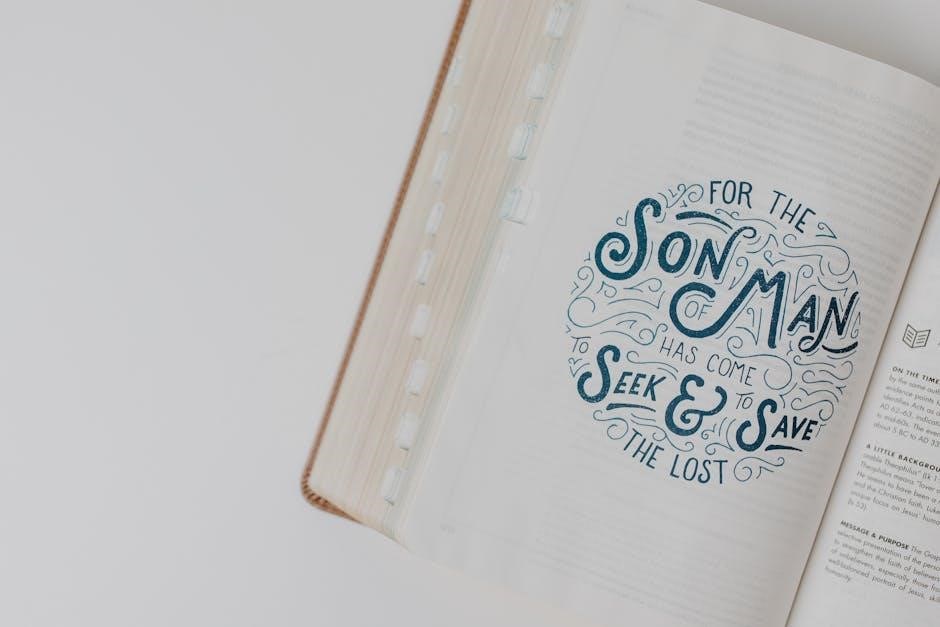 FOR THE
SON
OF MAN
HAS COME
TO SEEK & TO SAVE
THE LOST
ON THE TIME
by the same auth
evidence points t
identifies Acts as
AD 62–63, indicat
to mid-60s. The eve
about 5 BC to AD 33
A LITTLE BACKGROU
Theophilus" (Lk 1
Theophilus means "lover
He seems to have been a
and the Christian faith. Luke
unique focus on Jesus' huma
(Is 53).
MESSAGE & PURPOSE The Gosp
selective presentation of the perso
to strengthen the faith of believers
of unbelievers, especially those fro
well-balanced portrait of Jesus, skil
humanity.